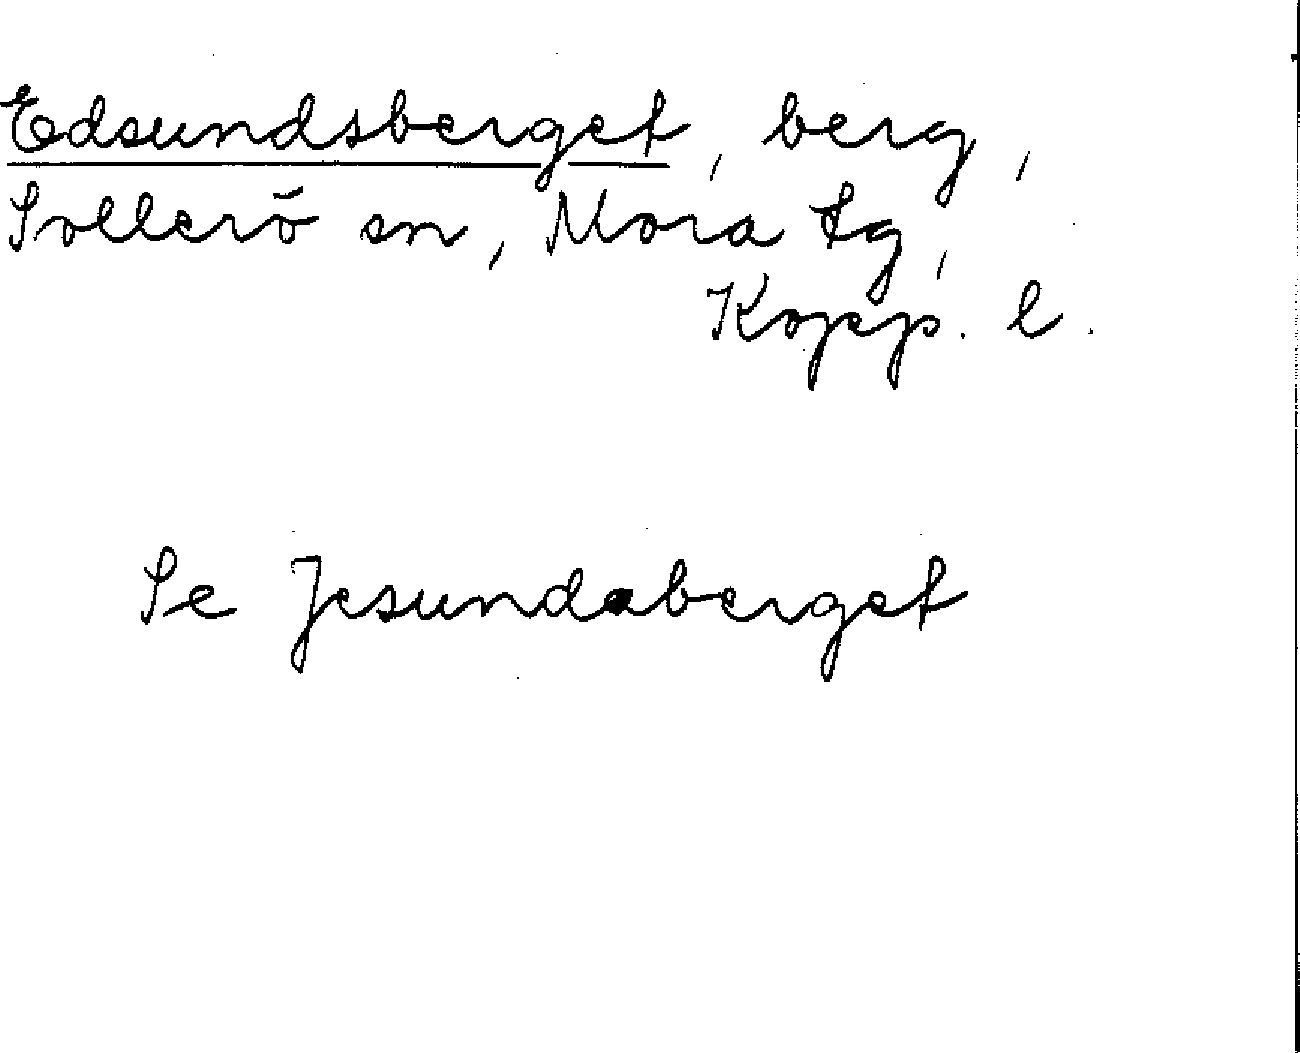 Edsundsberget, berg,
Sollerö sn, Mora tg,
Kopp. l.
Se Jesundaberget